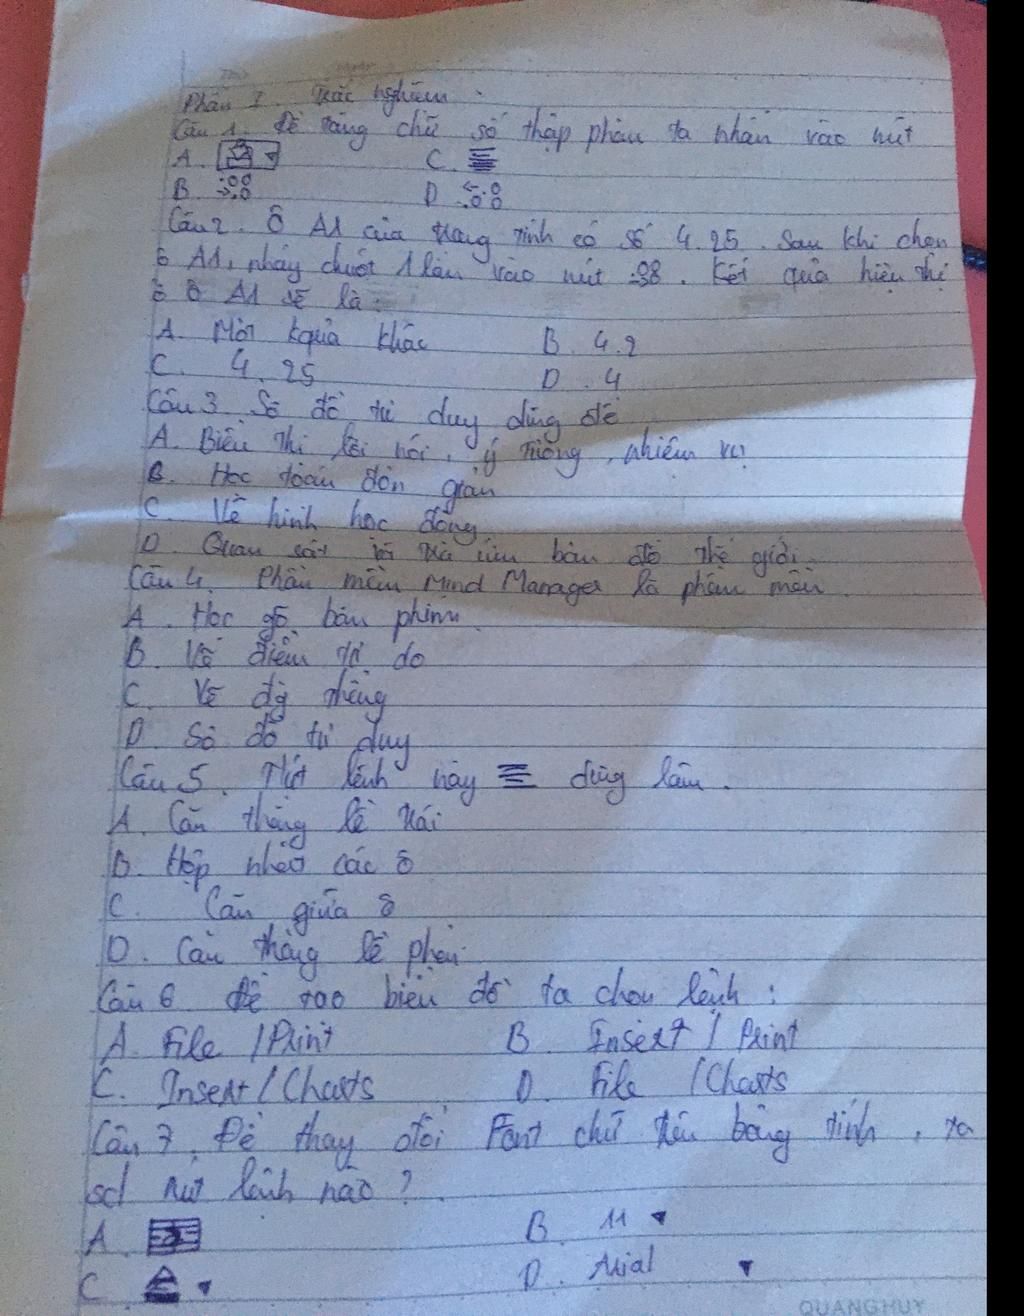 Phần I. Trắc nghiệm.
Câu 1. Để tăng chữ số thập phân ta nhấn vào nút
A. C.
B. D.
Câu 2. Ô A1 của trang tính có số 4.25. Sau khi chọn
ô A1, nháy chuột 1 lần vào nút . Kết quả hiện thị
ở ô A1 sẽ là:
A. Một kquả khác B. 4.2
C. 4.25 D. 4
Câu 3. Sơ đồ tư duy dùng để
A. Biểu thị lời nói, ý tưởng, nhiệm vụ
B. Học toán đơn giản
C. Vẽ hình học động
D. Quan sát và tra cứu bản đồ thế giới.
Câu 4. Phần mềm Mind Manager là phần mền.
A. Học gõ bàn phím.
B. Vẽ điểm tự do
C. Vẽ đg thẳng
D. Sơ đồ tư duy
Câu 5. Nút lệnh này ≡ dùng làm.
A. Căn thẳng lề trái
B. Hộp nhất các ô
C. Căn giữa ô
D. Căn thẳng lề phải.
Câu 6 Để tạo biểu đồ ta chọn lệnh:
A. File / Print B. Insert / Print
C. Insert / Charts D. File / Charts
Câu 7. Để thay đổi Font chữ trên bảng tính, ta
sd nút lệnh nào?
A. B. 11 ▾
C. ▾ D. Arial ▾
QUANGHUY